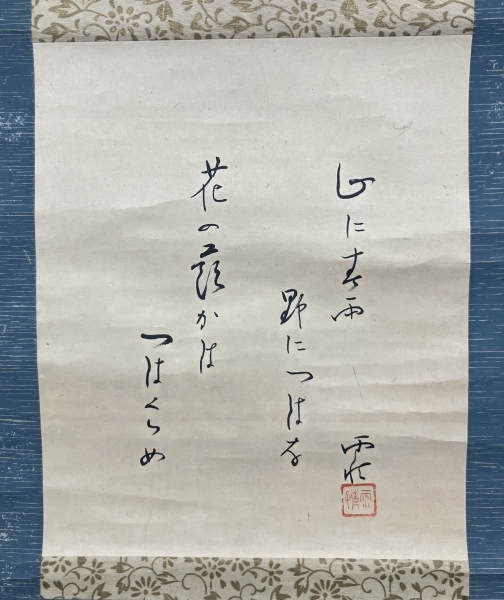 山に春雨
野につはな
花の かは
つはくらめ
雨情
雨情